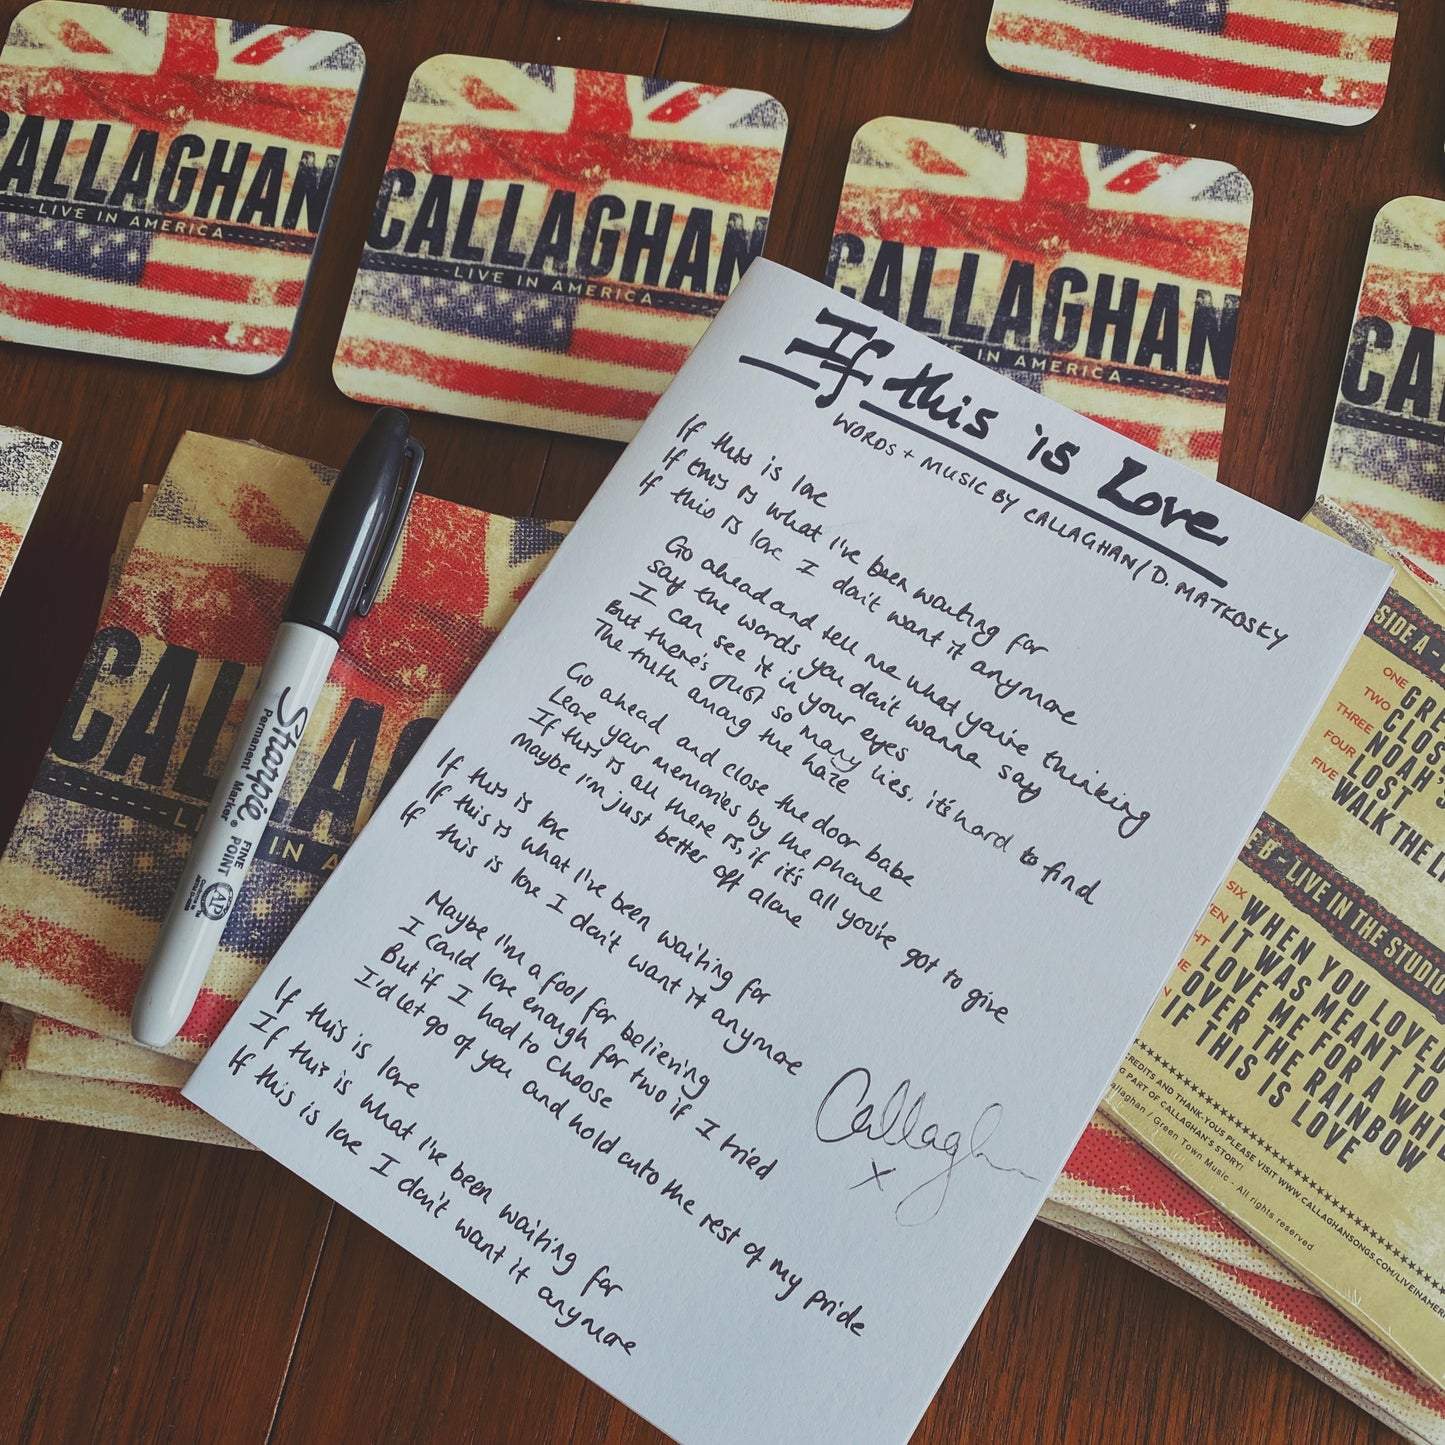 CALLAGHAN
LIVE IN AMERICA
CALLAGHAN
LIVE IN AMERICA
CALLAGHAN
IN AMERICA
CA
CAL
Sharpie.
Permanent Marker®
FINE POINT
AP
IN A
If this is Love
WORDS + MUSIC BY CALLAGHAN / D. MATKOSKY
If this is love
If this is what I've been waiting for
If this is love I don't want it anymore
Go ahead and tell me what you're thinking
say the words you don't wanna say
I can see it in your eyes
But there's just so many lies, it's hard to find
The truth among the haze
Go ahead and close the door babe
Leave your memories by the phone
If this is all there is, if it's all you've got to give
Maybe I'm just better off alone
If this is love
If this is what I've been waiting for
If this is love I don't want it anymore
Maybe I'm a fool for believing
I could love enough for two if I tried
But if I had to choose
I'd let go of you and hold onto the rest of my pride
If this is love
If this is what I've been waiting for
If this is love I don't want it anymore
Callaghan
X
SIDE A -
ONE
TWO CLOS
THREE NOAH'S
FOUR LOST
FIVE WALK THE LI
B - LIVE IN THE STUDIO
SIX WHEN YOU LOVED
IT WAS MEANT TO
LOVE ME FOR A WHI
OVER THE RAINBOW
IF THIS IS LOVE
CREDITS AND THANK-YOUS PLEASE VISIT WWW.CALLAGHANSONGS.COM/LIVEINAMER
G PART OF CALLAGHAN'S STORY!
allaghan / Green Town Music - All rights reserved